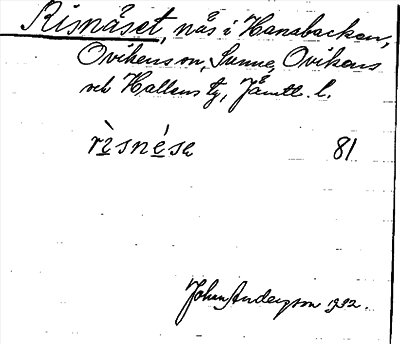 Risnäset, näs i Hansbacken,
Ovikens sn, Sunne, Ovikens
och Hallens tg, Jämtl. l.
rìsnése 81
John Anderzon 1932.